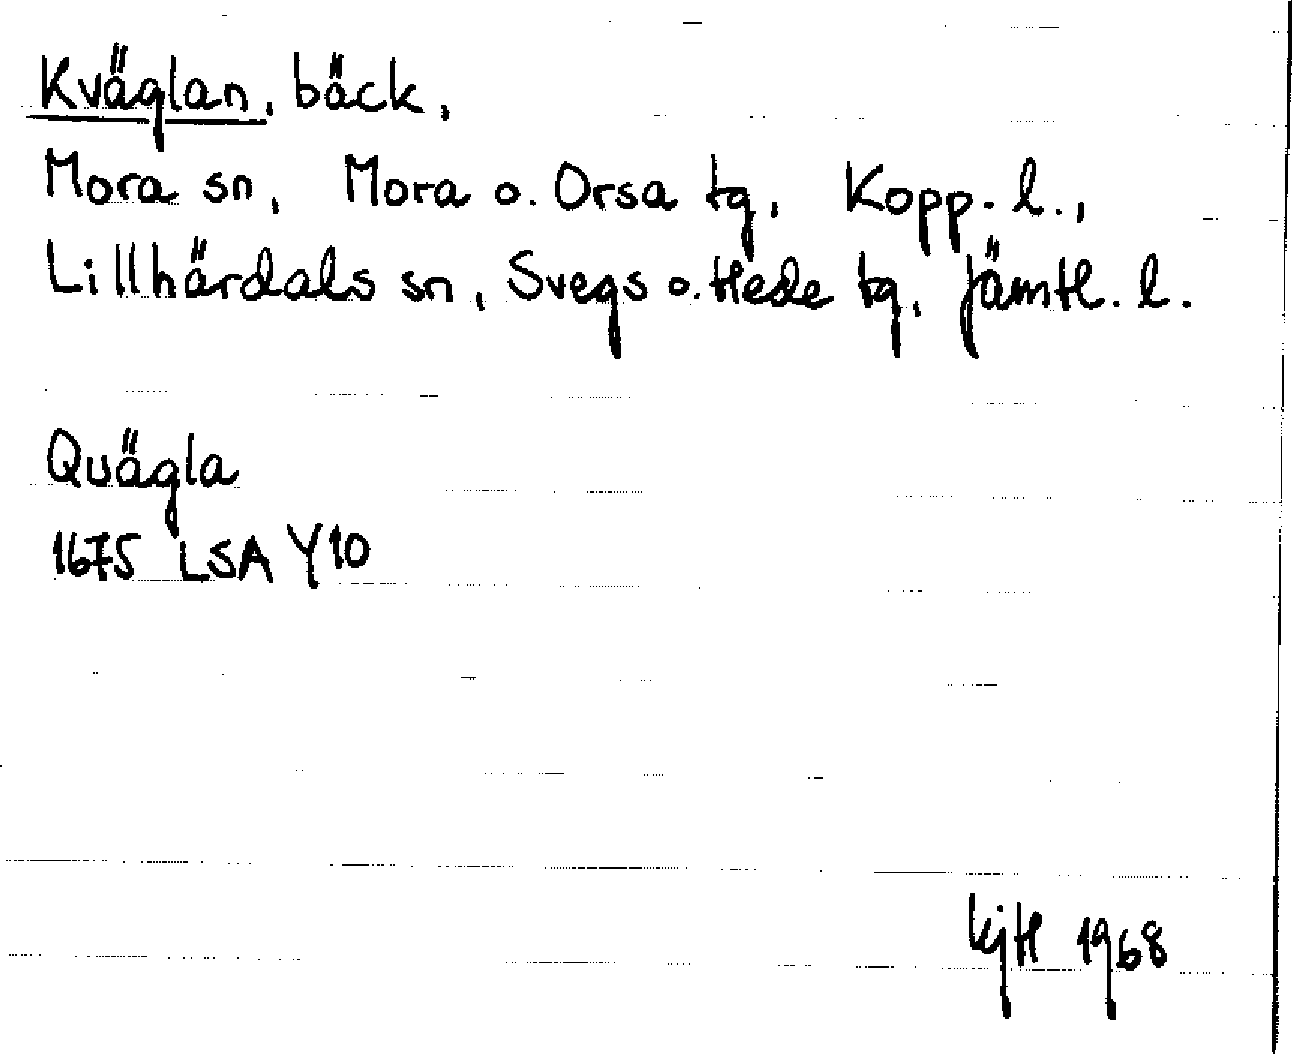 Kväglan, bäck,
Mora sn, Mora o. Orsa tg, Kopp. l.,
Lillhärdals sn, Svegs o. Hede tg, Jämtl. l.
Quägla
1675 LSA Y10
KjH 1968